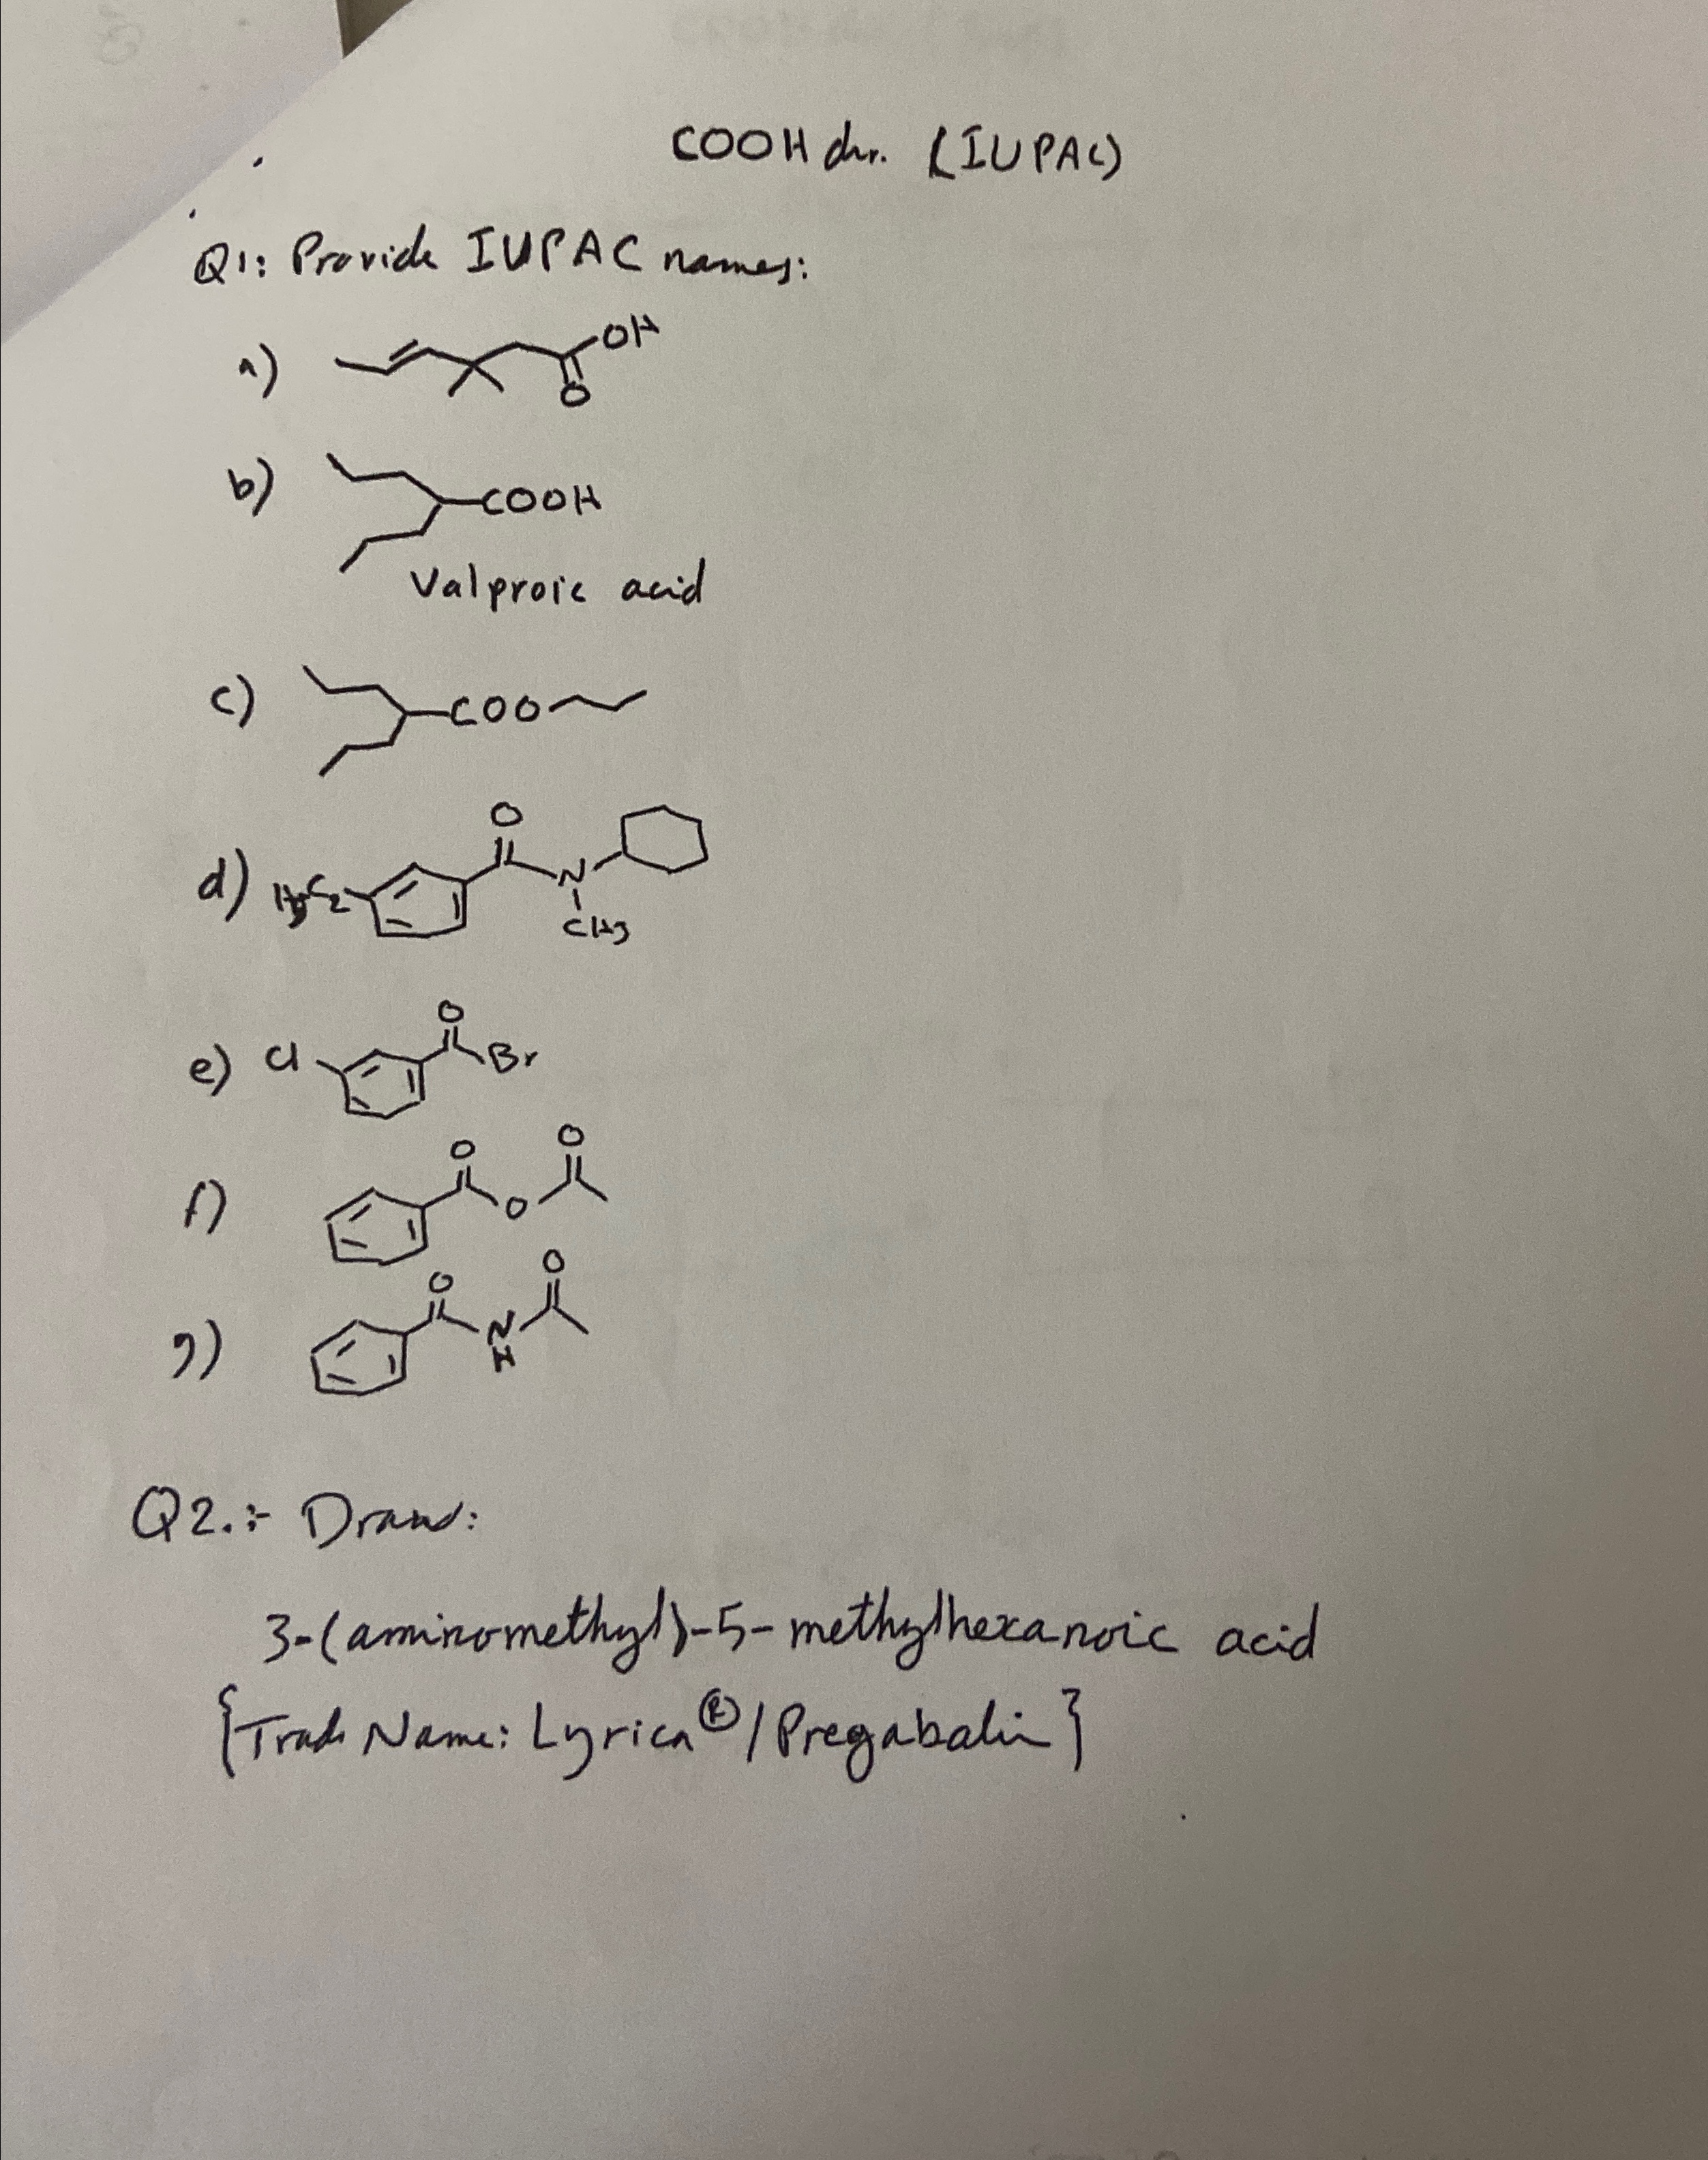 COOH dr. (IUPAC)
Q1: Provide IUPAC names:
a) OH
O
b) COOH
Valproic acid
c) COO
d) O
N
CH3
e) Cl O Br
f) O O O
g) O N H O
Q2.:- Draw:
3-(aminomethyl)-5-methylhexanoic acid
{Trade Name: Lyrica®/Pregabalin}